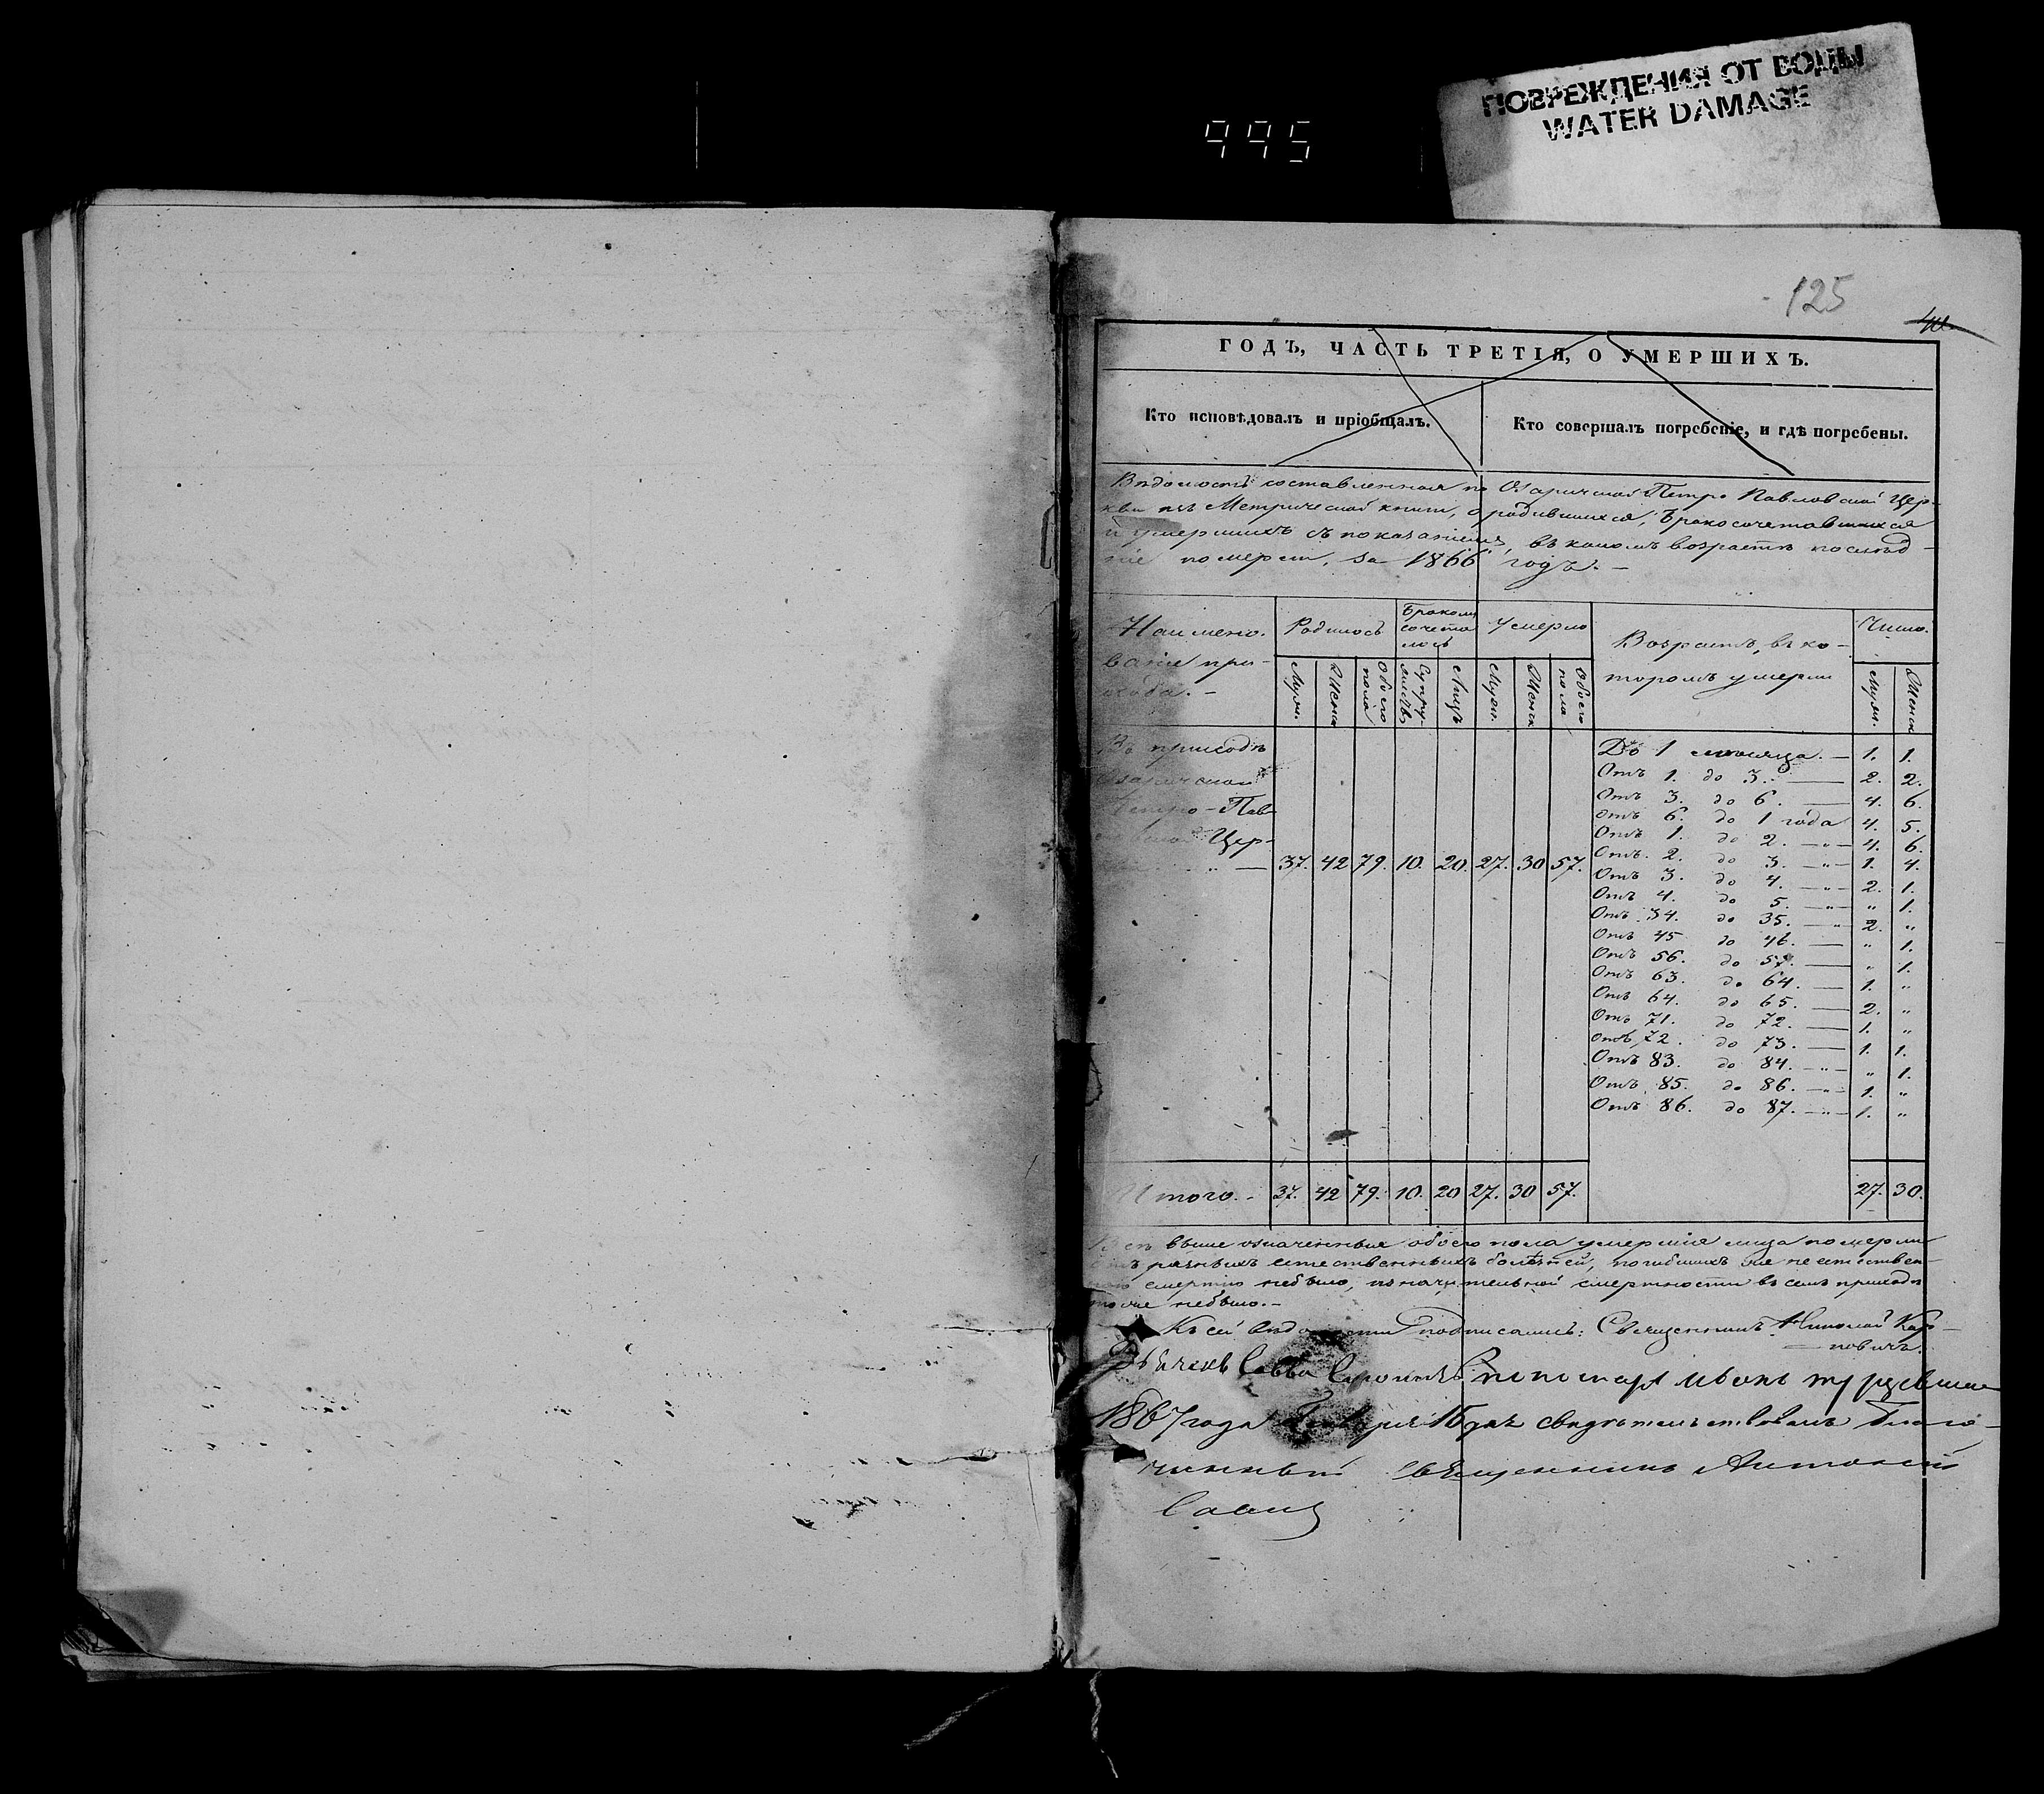 ПОВРЕЖДЕНИЯ ОТ ВОДЫ
WATER DAMAGE
995
125
ГОДЪ, ЧАСТЬ ТРЕТІЯ, О УМЕРШИХЪ.
Кто исповѣдовалъ и пріобщалъ. Кто совершалъ погребеніе, и гдѣ погребены.
Вѣдомость составленная по Озаричской Петро Павловской Цер-
кви изъ Метрической книги, о родившихся, бракосочетавшихся
и умершихъ съ показаніемъ, въ какомъ возрастѣ послѣд-
ніе померли, за 1866 годъ. –
Наимено- Родилось Бракомъ сочета лось Умерло Возрастъ, въ ко- Число.
ваніе при-
хода. – Муж. Женс Обоего пола Супру жествъ Лицъ Муж. Женск Обоего пола торомъ умерли Муж. Женск
Въ приходѣ До 1 мѣсяца. — 1. 1.
Озаричской Отъ 1. до 3. — 2. 2.
Петро-Пав- Отъ 3. до 6. — 4. 6.
отъ 6. до 1 года 4. 5.
Цер- Отъ 1. до 2. — „ — 4. 6.
„ — 37. 42 79. 10. 20. 27. 30 57. Отъ 2. до 3. — „ — 1. 4.
Отъ 3. до 4. — „ — 2. 1.
Отъ 4. до 5. — „ — „ 1.
Отъ 34. до 35. — „ — 2. „
Отъ 45 до 46. — „ 1.
Отъ 56. до 57. — „ 1.
Отъ 63. до 64. — 1. „
Отъ 64. до 65. — 2. „
Отъ 71. до 72. — 1. „
Отъ 72. до 73. — 1. 1.
Отъ 83. до 84. — „ — „ 1.
Отъ 85. до 86. — „ — 1. „
Отъ 86. до 87. — „ — 1. „
Итого. – 37. 42 79. 10. 20 27. 30 57. 27. 30.
Всѣ выше означенныя обоего пола умершіе лица померли
отъ разныхъ естественныхъ болѣзней, погибшихъ же неестествен-
ною смертію небыло, значительной смертности въ семъ приходѣ
тоже небыло. –
Къ сей вѣдомости подписались: Священникъ Николай Кар-
повичъ.
Дьячекъ Савва
1867 года Января 16 дня свидѣтельствовалъ Благо-
чинный Священникъ Антоній